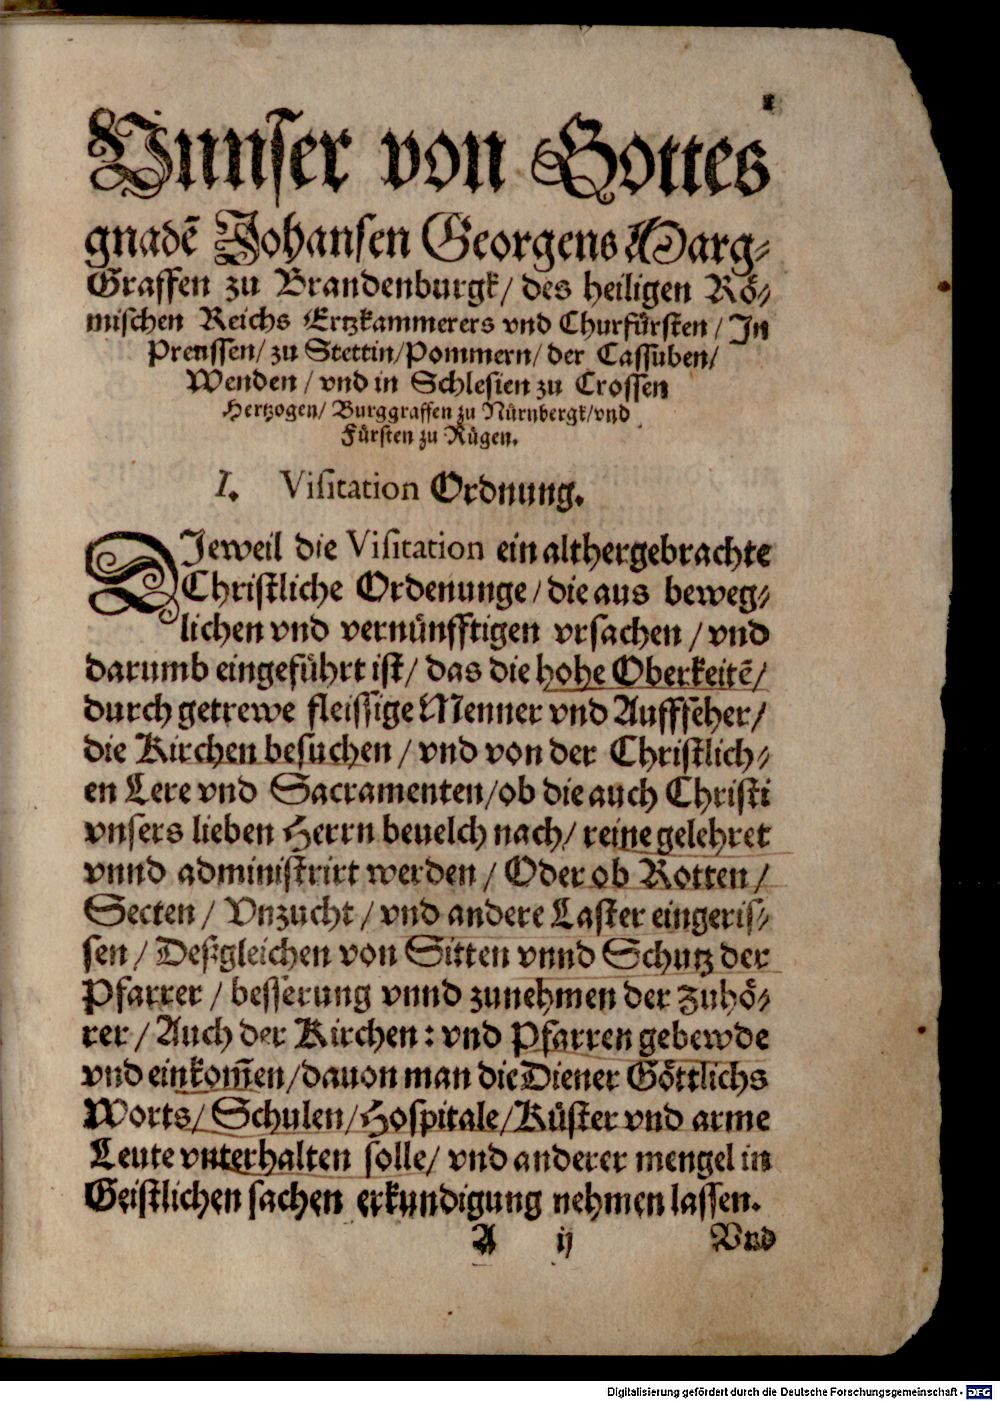 1
Vnnser von Gottes
gnadē Johansen Georgens Marg⸗
Graffen zu Brandenburgk/ des heiligen Rö⸗
mischen Reichs Ertzkammerers vnd Churfürsten/ In
Preussen/ zu Stettin/ Pommern/ der Cassuben/
Wenden/ vnd in Schlesien zu Crossen
Hertzogen/ Burggraffen zu Nürnbergk/ vnd
Fürsten zu Rügen.
I. Visitation Ordnung.
DJeweil die Visitation ein althergebrachte
Christliche Ordenunge/ die aus beweg⸗
lichen vnd vernünfftigen vrsachen/ vnd
darumb eingeführt ist/ das die hohe Oberkeitē/
durch getrewe fleissige Menner vnd Auffseher/
die Kirchen besuchen/ vnd von der Christlich⸗
en Lere vnd Sacramenten/ ob die auch Christi
vnsers lieben Herrn beuelch nach/ reine gelehret
vnnd administrirt werden/ Oder ob Rotten/
Secten/ Vnzucht/ vnd andere Laster eingeris⸗
sen/ Desgleichen von Sitten vnnd Schutz der
Pfarrer/ besserung vnnd zunehmen der zuhö⸗
rer/ Auch der Kirchen: vnd Pfarren gebewde
vnd einkom̄en/ dauon man die Diener Göttlichs
Worts/ Schulen/ Hospitale/ Küster vnd arme
Leute vnterhalten solle/ vnd anderer mengel in
Geistlichen sachen erkundigung nehmen lassen.
A ij Vnd
Digitalisierung gefördert durch die Deutsche Forschungsgemeinschaft - DFG